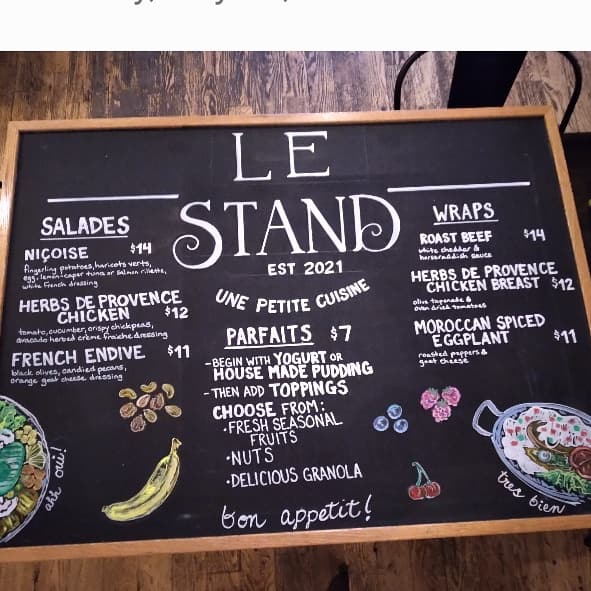 LE
STAND
EST 2021
UNE PETITE CUISINE
SALADES
NIÇOISE $14
fingerling potatoes, haricots verts,
egg, lemon-caper tuna or salmon rillette,
white French dressing
HERBS DE PROVENCE
CHICKEN $12
tomato, cucumber, crispy chickpeas,
avocado herbed crème fraiche dressing
FRENCH ENDIVE $11
black olives, candied pecans,
orange goat cheese dressing
ahh oui!
PARFAITS $7
-BEGIN WITH YOGURT OR
HOUSE MADE PUDDING
-THEN ADD TOPPINGS
CHOOSE FROM:
•FRESH SEASONAL
FRUITS
•NUTS
•DELICIOUS GRANOLA
bon appetit!
WRAPS
ROAST BEEF $14
white cheddar &
horseraddish sauce
HERBS DE PROVENCE
CHICKEN BREAST $12
olive tapenade &
oven dried tomatoes
MOROCCAN SPICED
EGGPLANT $11
roasted peppers &
goat cheese
tres bien